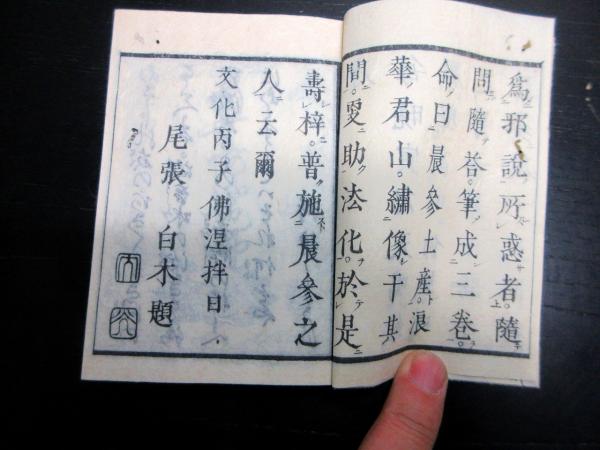 爲邪說所惑者隨
問隨荅筆成三卷
命曰晨參土產浪
華君山繡像于其
間㪅助法化於是
壽梓普施晨參之
人云爾
文化丙子佛涅拌日
尾張 白木題